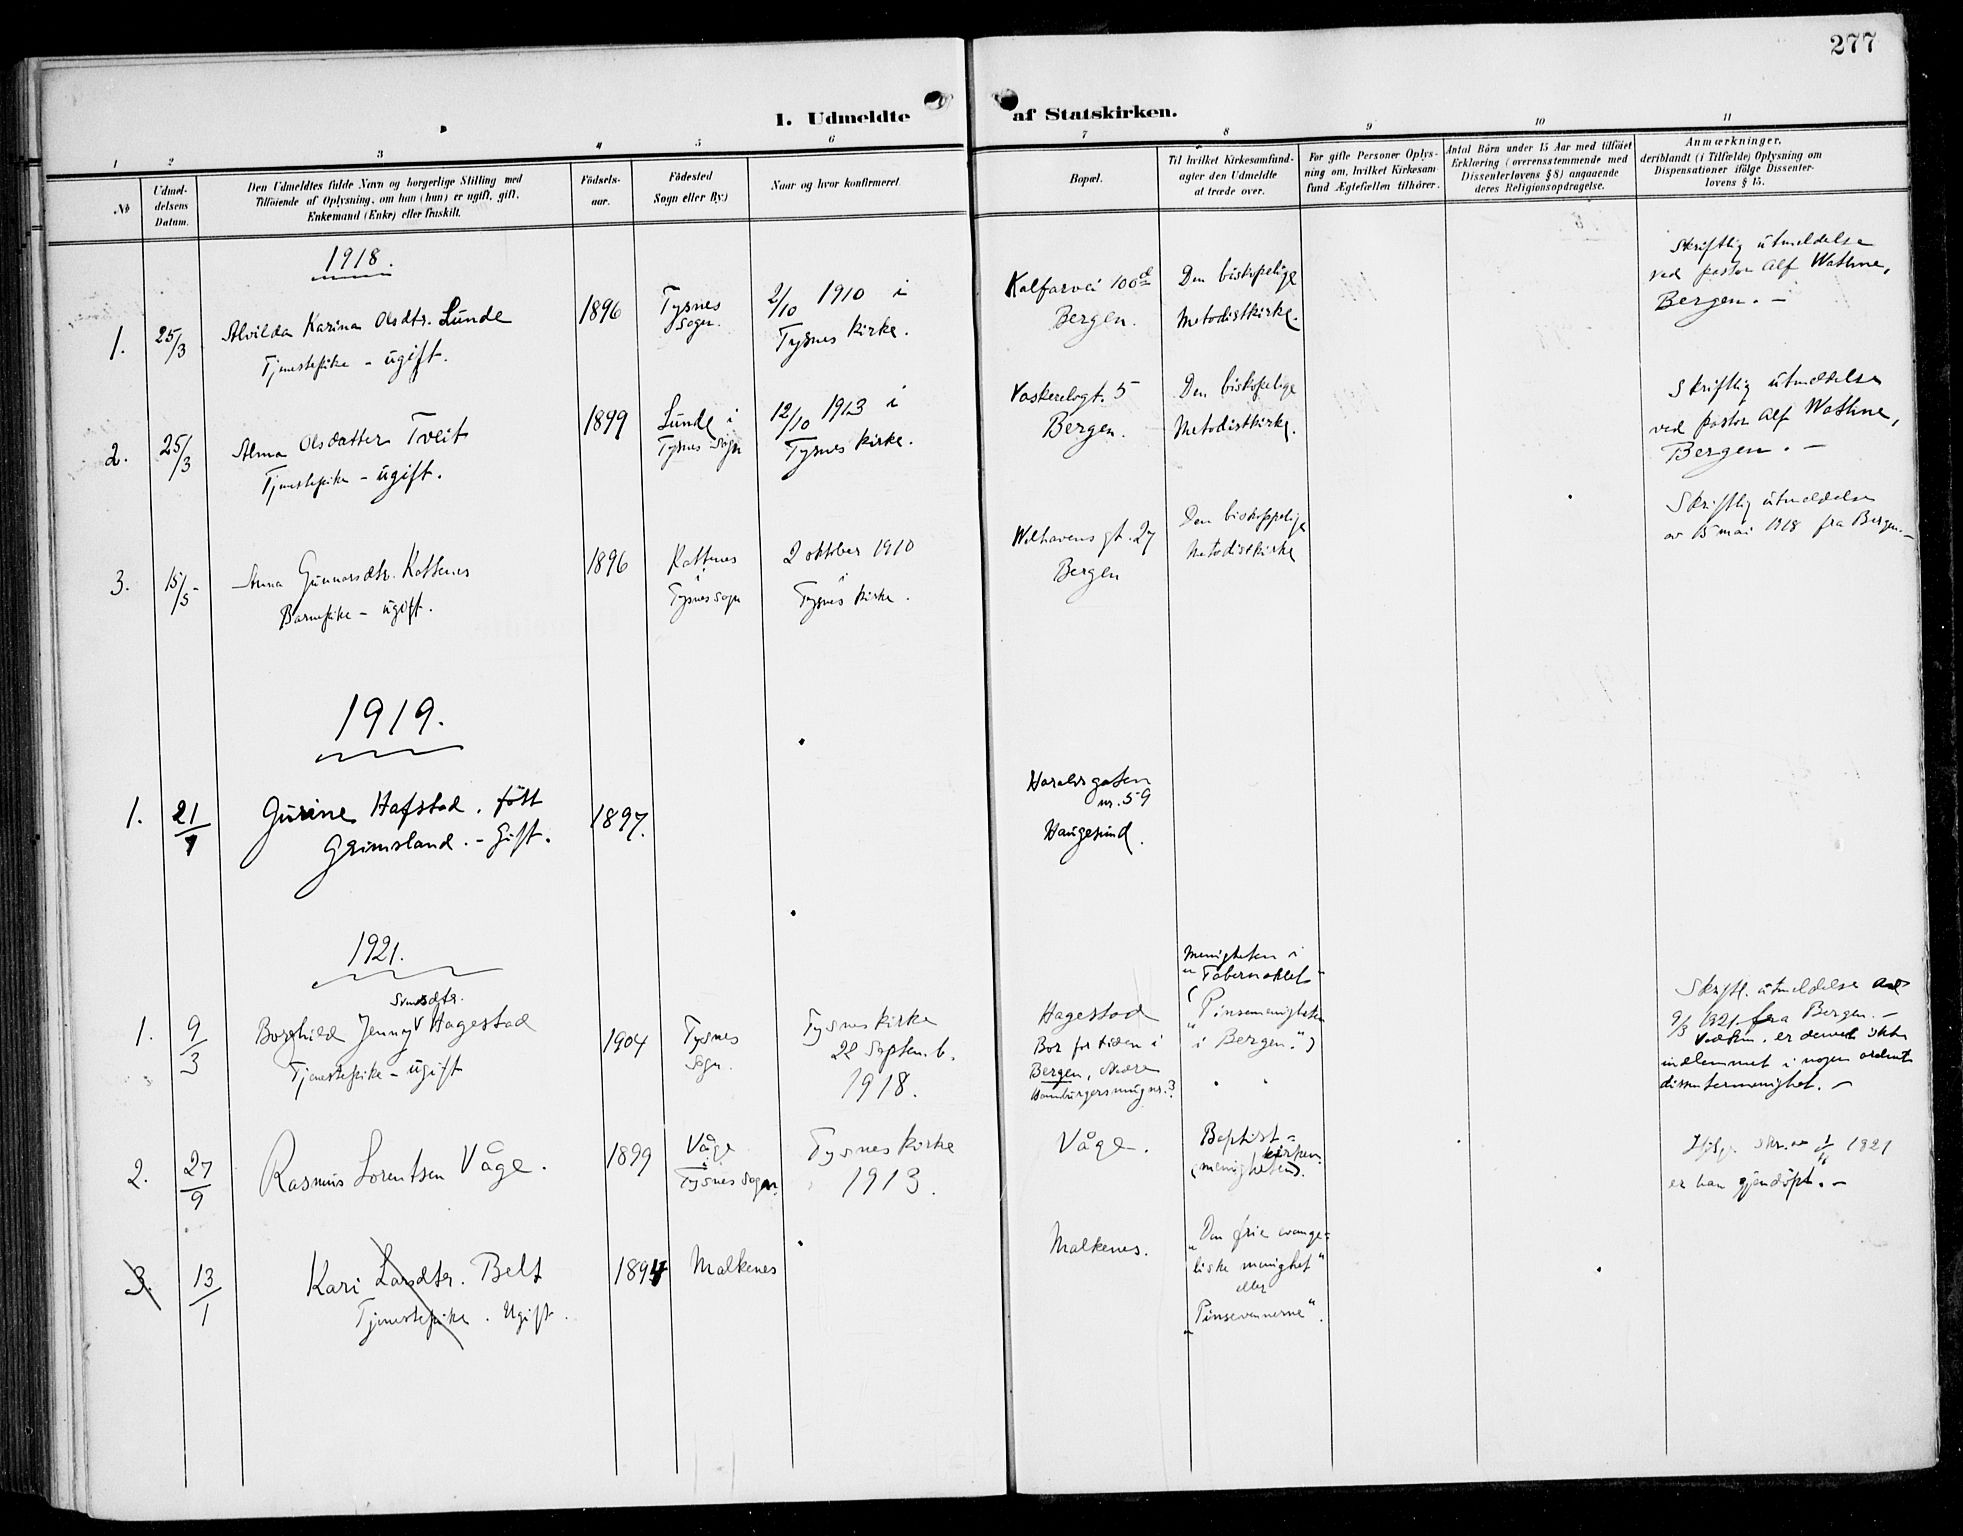 277
1. Udmeldte af Statskirken.
1 2 3 4 5 6 7 8 9 10 11
No
Udmel-
delsens
Datum.
Den Udmeldtes fulde Navn og borgerlige Stilling med
Tilföiende af Oplysning, om han (hun) er ugift, gift,
Enkemand (Enke) eller fraskilt.
Födsels-
aar.
Födested
Sogn eller By.)
Naar og hvor konfirmeret.
Bopæl.
Til hvilket Kirkesamfund-
agter den Udmeldte
at træde over.
For gifte Personer Oplys-
ning om, hvilket Kirkesam-
fund Ægtefællen tilhörer.
Antal Börn under 15 Aar med tilföiet
Erklæring (overensstemmende med
Dissenterlovens § 8) angaaende
deres Religionsopdragelse.
Anmærkninger,
deriblandt (i Tilfælde) Oplysning om
Dispensationer ifölge Dissenter-
lovens § 15.
1918.
1. 25/3
Alvilda Karina Olsdtr. Lunde
Tjenestepike - ugift.
1896
Tysnes
Sogn.
2/10 1910 i
Tysnes kirke.
Kalfarvei 100
Bergen.
Den biskopelige
Metodistkirke.
Skriftlig utmeldelse
ved pastor Alf Wathne,
Bergen. -
2. 25/3
Alma Olsdatter Tveit
Tjenestepike - ugift.
1899
Lunde i
Tysnes Sogn
12/10 1913 i
Tysnes kirke.
Vaskerelvgt. 5
Bergen.
Den biskopelige
Metodistkirke.
Skriftlig utmeldelse
ved pastor Alf Wathne,
Bergen. -
3. 15/5
Anna Gunnarsdtr. Kattenes
Barnepike - ugift.
1896
Kattnes
i
Tysnes Sogn
2 oktober 1910
i
Tysnes kirke.
Welhavens gt. 27
Bergen
Den biskoppelige
Metodistkirke
Skriftlig utmeldelse
av 15 mai 1918 fra Bergen. -
1919.
1. 21/7
Gurine Hafstad. födt
Grimsland. - Gift.
1897.
Haraldsgaten
nr. 59
Haugesund.
1921.
1. 9/3
Simonsdtr.
Borghild Jenny V Hagestad
Tjenestepike - ugift
1904
Tysnes
Sogn.
Tysnes kirke
22 Septemb.
1918.
Hagestad
Bor for tiden i
Bergen, Nedre
Hamburgersmug nr. 3
Menigheten i
"Tabernaklet"
("Pinsemenigheten
i Bergen.")
Skriftl. utmeldelse
9/3 1921 fra Bergen. -
Vedkm. er dermed ikke
indlemmet i nogen ordent
dissentermenighet. -
2. 27/9
Rasmus Lorentsen Våge.
1899
Våge
i
Tysnes Sogn.
Tysnes kirke
1913.
Våge.
Baptist-
kirken
(menigheten).
Ifølg. skr. av 1821
er han gjendöpt. -
3. 13/1
Kari Larsdtr. Belt
Tjenestepike. Ugift.
1894
Malkenes
Malkenes.
"Den frie evange-
liske menighet"
eller
"Pinsevennerne".